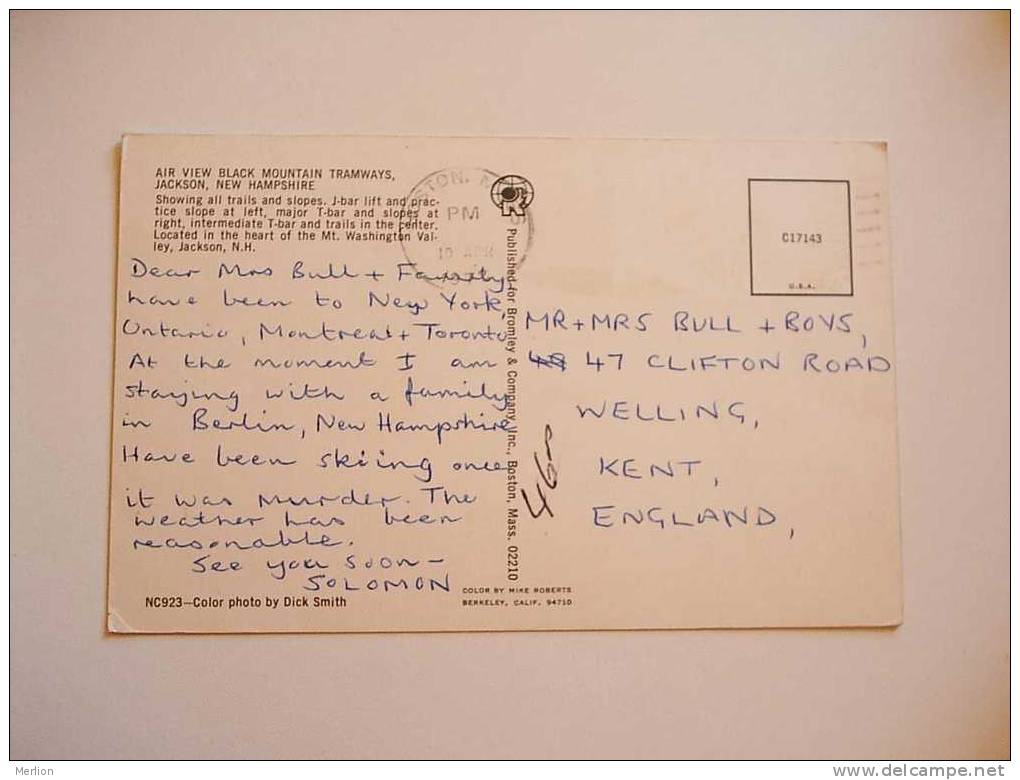 AIR VIEW BLACK MOUNTAIN TRAMWAYS,
JACKSON, NEW HAMPSHIRE
Showing all trails and slopes. J-bar lift and prac-
tice slope at left, major T-bar and slopes at
right, intermediate T-bar and trails in the center.
Located in the heart of the Mt. Washington Val-
ley, Jackson, N.H.
Dear Mrs Bull + Family
have been to New York,
Ontario, Montreal + Toronto
At the moment I am
staying with a family
in Berlin, New Hampshire
Have been skiing once
it was murder. The
weather has been
reasonable.
See you soon —
SOLOMON
NC923—Color photo by Dick Smith
PM
Published for Bromley & Company, Inc., Boston, Mass. 02210
COLOR BY MIKE ROBERTS
BERKELEY, CALIF. 94710
C17143
U.S.A.
MR + MRS BULL + BOYS,
47 CLIFTON ROAD
WELLING,
KENT,
ENGLAND,
Merlion
www.delcampe.net